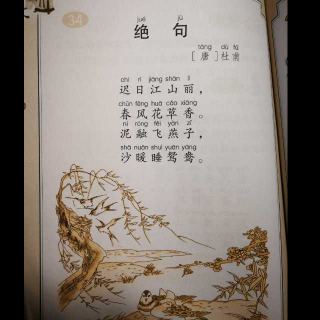 34
jué jù
绝句
táng dù fǔ
[唐]杜甫
chí rì jiāng shān lì
迟日江山丽，
chūn fēng huā cǎo xiāng
春风花草香。
ní róng fēi yàn zǐ
泥融飞燕子，
shā nuǎn shuì yuān yāng
沙暖睡鸳鸯。